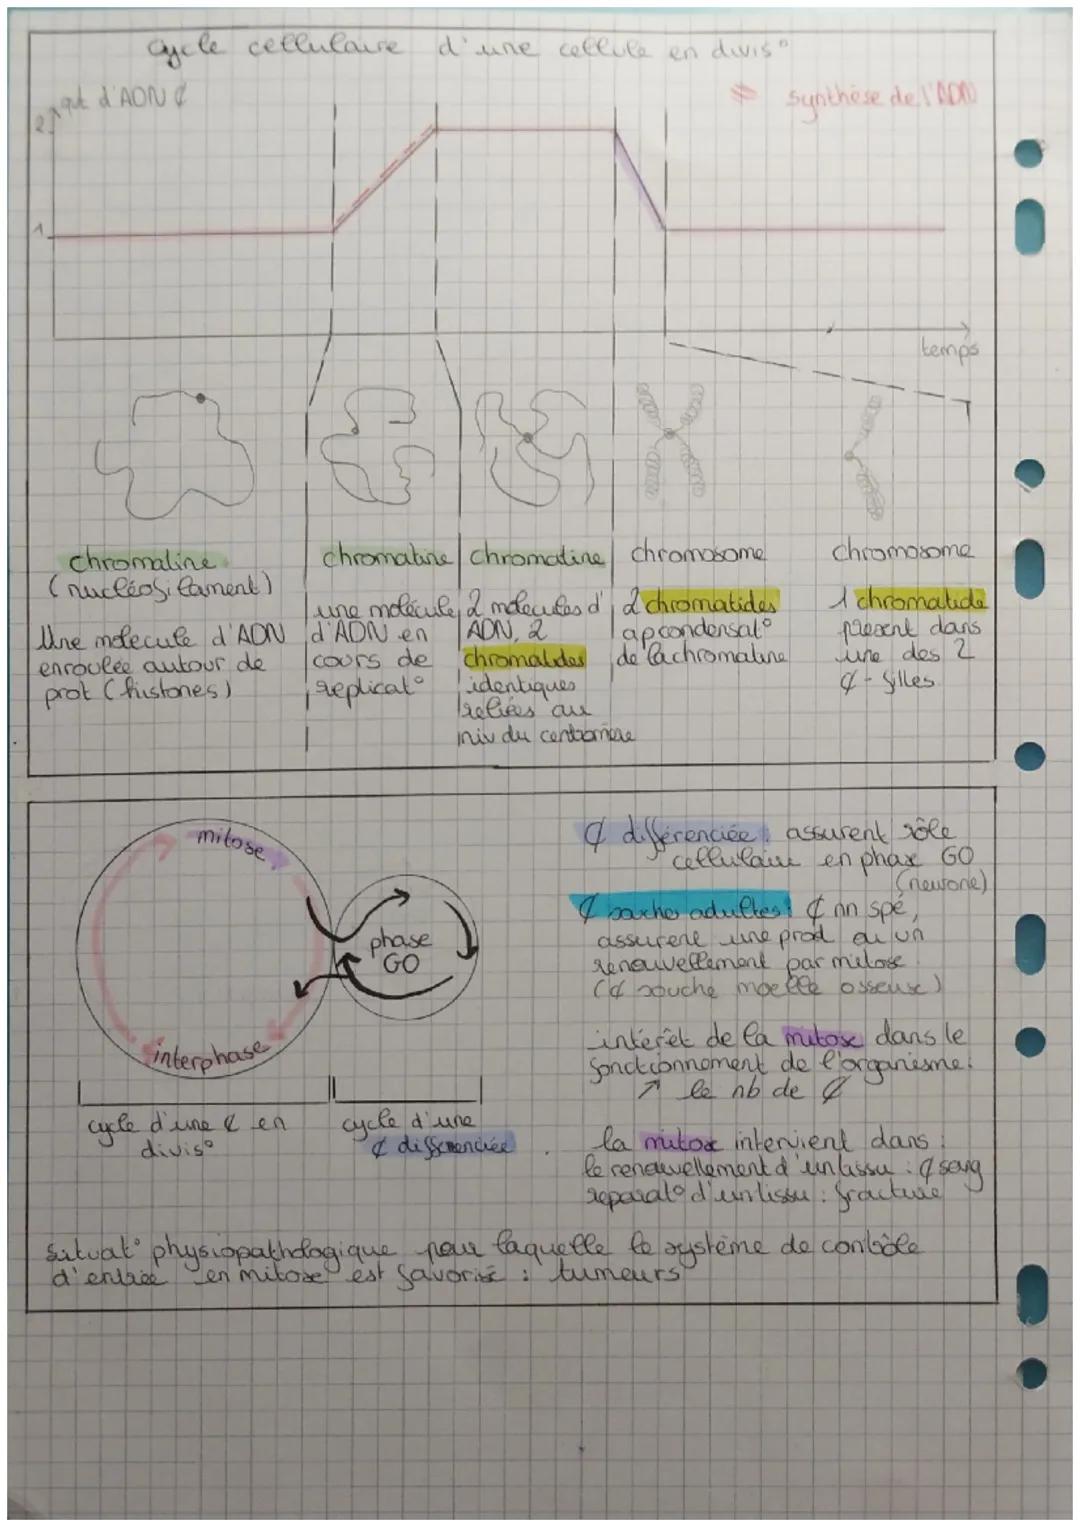 cycle cellulaire d'une cellule en divis°
qut d'ADN ₵
synthèse de l'ADN
2
1
temps
chromatine
(nucléofilament)
Une molécule d'ADN
enroulée autour de
prot (histones)
chromatine
une molécule
d'ADN en
cours de
réplicat°
chromatine
2 molécules d'
ADN, 2
chromatides
identiques
reliées au
niv du centromère
chromosome
2 chromatides
ap condensat°
de la chromatine
chromosome
1 chromatide
présent dans
une des 2
₵-filles
mitose
phase
GO
interphase
cycle d'une ₵ en
divis°
cycle d'une
₵ différenciée
₵ différenciée : assurent rôle
cellulaire en phase GO
(neurone)
₵ souches adultes : ₵ nn spé,
assurent une prod ou un
renouvellement par mitose
(₵ souche moelle osseuse)
intérêt de la mitose dans le
fonctionnement de l'organisme :
↗ le nb de ₵
la mitose intervient dans :
le renouvellement d'un tissu : ₵ sang
réparat° d'un tissu : fracture
situat° physiopathologique pour laquelle le système de contrôle
d'entrée en mitose est favorisé : tumeurs